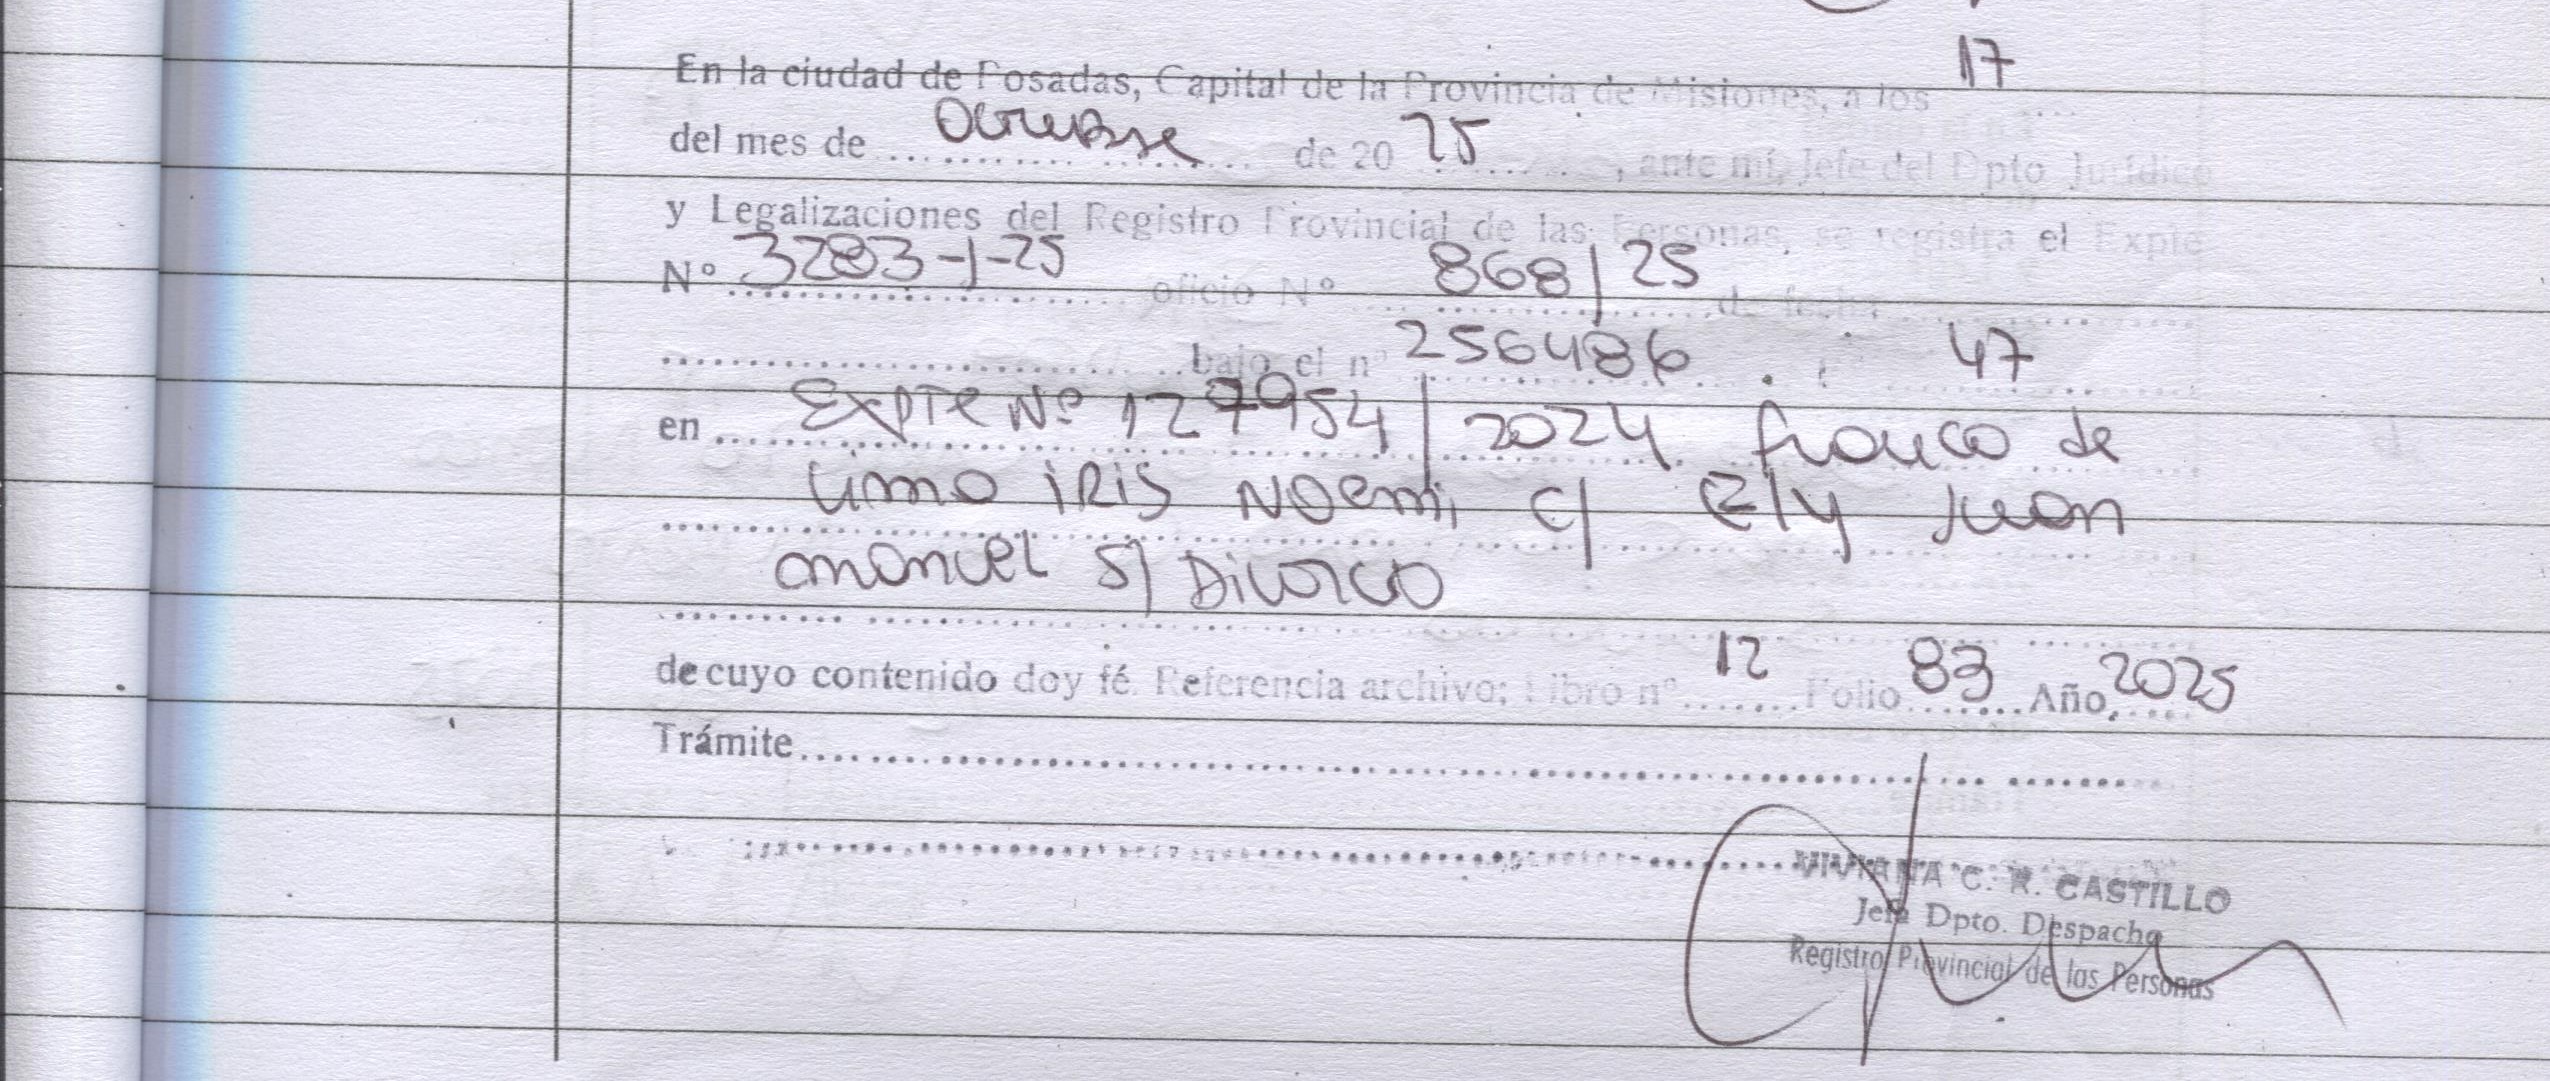 En la ciudad de Posadas, Capital de la Provincia de Misiones, a los 17
del mes de Octubre de 20 25, ante mí, Jefe del Dpto Jurídico
y Legalizaciones del Registro Provincial de las Personas, se registra el Expte
Nº 3283-J-25 oficio Nº 868/25 de fecha
bajo el nº 256486 47
en Expte Nº 127954/2024 franco de
Lima IRIS NOEMI C/ Ely Juan
manuel S/ Divorcio
de cuyo contenido doy fé. Referencia archivo: Libro nº 12 Folio 83 Año 2025
Trámite
VIVIANA C. R. CASTILLO
Jefa Dpto. Despacho
Registro Provincial de las Personas